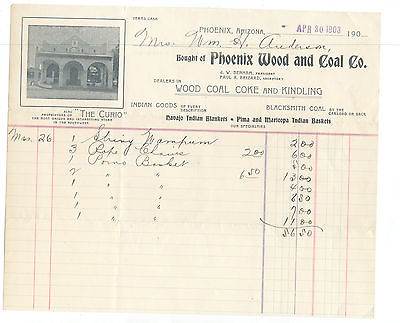 TERMS CASH
PHOENIX, ARIZONA, APR 30 1903 190
Mrs. Wm. H. Anderson,
Bought of Phoenix Wood and Coal Co.
J. W. BENHAM, PRESIDENT
PAUL H. BRIZARD, SECRETARY
DEALERS IN
WOOD COAL COKE AND KINDLING
INDIAN GOODS OF EVERY DESCRIPTION
BLACKSMITH COAL BY THE CARLOAD OR SACK
ALSO PROPRIETORS OF "THE CURIO"
THE MOST UNIQUE AND INTERESTING STORE
IN THE SOUTHWEST
Navajo Indian Blankets • Pima and Maricopa Indian Baskets
OUR SPECIALTIES
Mar. 26 1 String Wampum 2 00
3 Pipe 2 00 6 00
1 Pima Basket 5 00
2 " " 6 50 13 00
1 " " 4 00
1 " " 8 00
1 " " 
1 " " 11 00
56 50